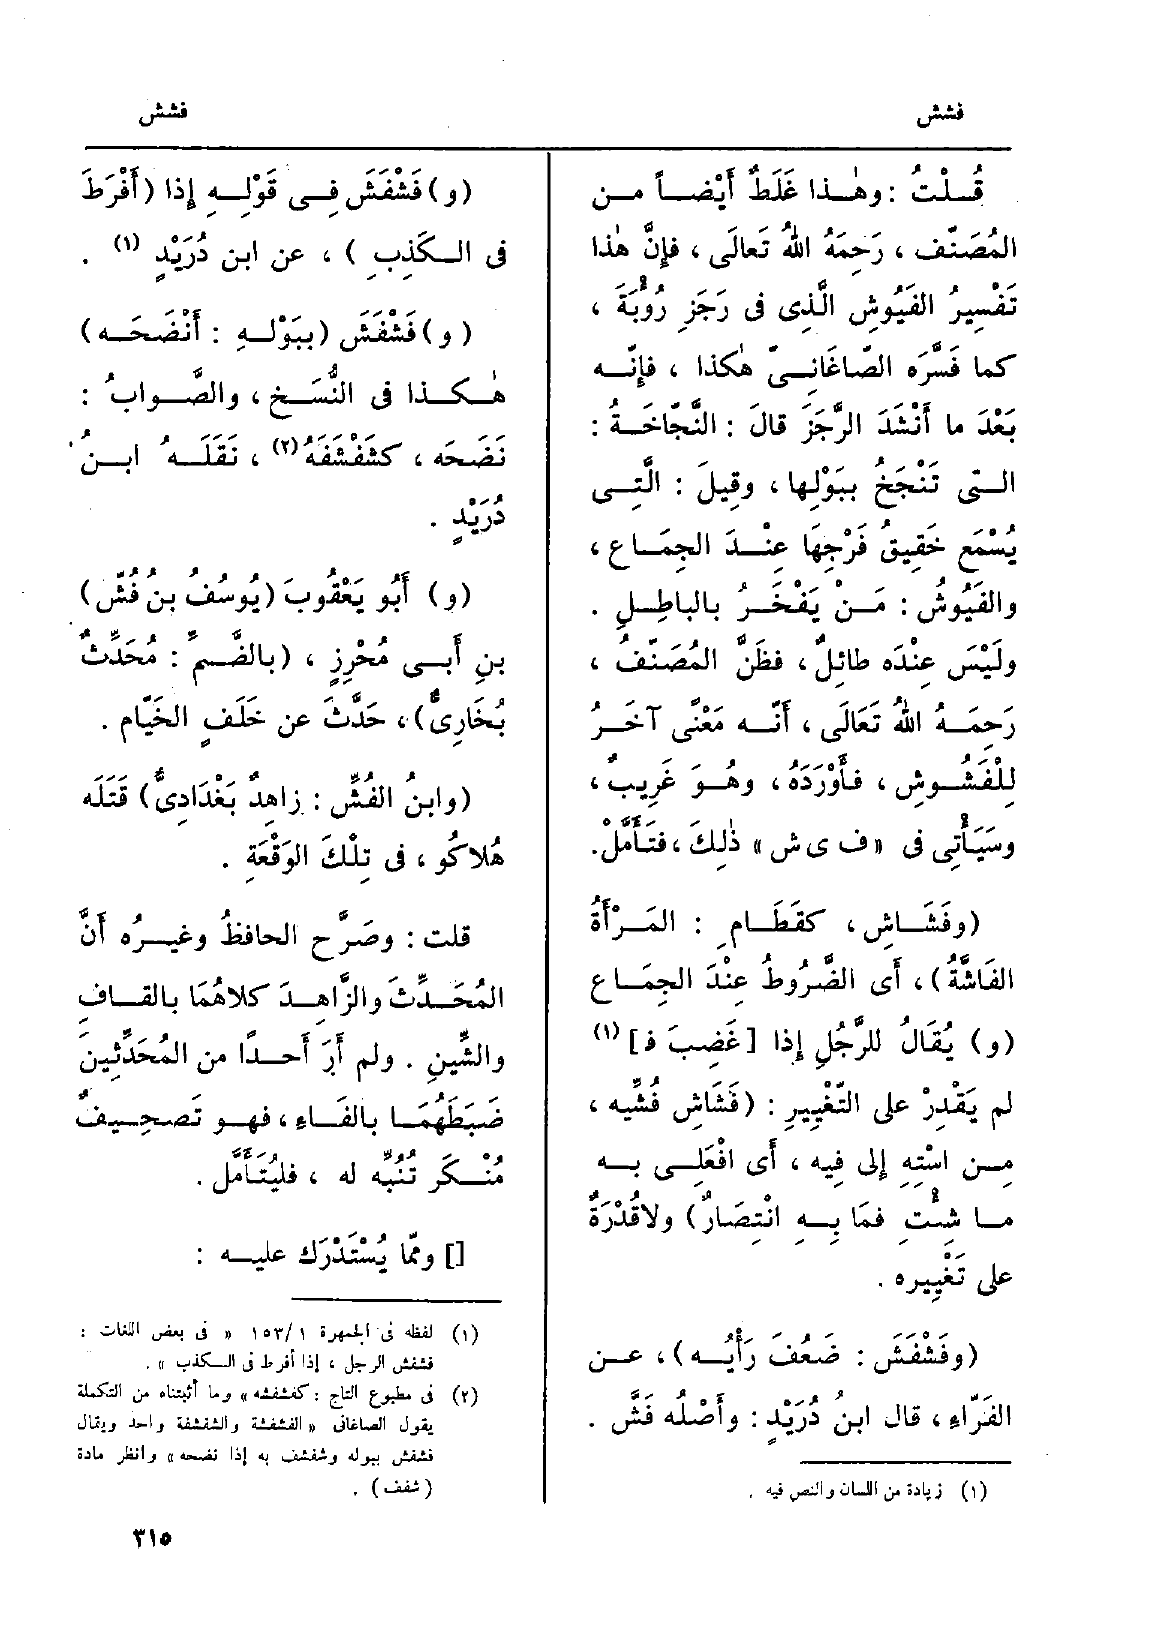 فشش
فشش
قُلْتُ : وهٰذا غَلَطٌ أَيْضاً من
المُصَنِّف ، رَحِمَهُ اللهُ تَعالَى ، فإِنَّ هٰذا
تَفْسِيرُ الفَيُوشِ الَّذِى فى رَجَزِ رُؤْبَةَ ،
كما فَسَّرَه الصّاغَانِىّ هٰكذا ، فإِنّه
بَعْدَ ما أَنْشَدَ الرَّجَزَ قالَ : النَّجّاخَةُ :
الَّتِى تَنْجَخُ ببَوْلِها ، وقِيلَ : الَّتِى
يُسْمَع خَقِيقُ فَرْجِهَا عِنْدَ الجِمَاعِ ،
والفَيُوشُ : مَنْ يَفْخَرُ بالباطِلِ .
ولَيْسَ عِنْدَه طائِلٌ ، فظَنَّ المُصَنِّفُ ،
رَحِمَهُ اللهُ تَعَالَى ، أَنَّه مَعْنًى آخَرُ
لِلْفَشُوشِ ، فأَوْرَدَهُ ، وهُوَ غَرِيبٌ ،
وسَيَأْتِى فى «ف ى ش» ذٰلِكَ ، فتَأَمَّلْ.
(وفَشَاشِ ، كقَطَامِ : المَرْأَةُ
الفَاشَّةُ) ، أَى الضَّرُوطُ عِنْدَ الجِمَاعِ
(و) يُقَالُ للرَّجُلِ إِذا [غَضِبَ فـ] (١)
لم يَقْدِرْ على التَّغْيِيرِ : (فَشَاشِ فُشِّيه ،
مِن اسْتِهِ إِلى فِيه ، أَى افْعَلِى به
ما شِئْتِ فمَا بِهِ انْتِصَارٌ) ولاقُدْرَةٌ
على تَغْيِيره .
(وفَشْفَشَ : ضَعُفَ رَأْيُه) ، عن
الفَرّاءِ ، قال ابنُ دُرَيْدٍ : وأَصْلُه فَشَّ .
(١) زيادة من اللسان والنص فيه .
(و) فَشْفَشَ فِى قَوْلِهِ إِذا (أَفْرَطَ
فى الكَذِبِ ) ، عن ابن دُرَيْدٍ (١) .
( و) فَشْفَشَ (ببَوْلِهِ : أَنْضَحَه)
هٰكذا فى النُّسَخِ ، والصَّوابُ :
نَضَحَه ، كشَفْشَفَهُ (٢) ، نَقَلَهُ ابنُ
دُرَيْدٍ .
(و) أَبُو يَعْقُوبَ (يُوسُفُ بن فُشّ)
بنِ أَبِى مُحْرِزٍ ، (بالضَّمِّ : مُحَدِّثٌ
بُخَارِىٌّ) ، حَدَّثَ عن خَلَفٍ الخَيّام .
(وابنُ الفُشِّ : زاهِدٌ بَغْدَادِىٌّ) قَتَلَه
هُلاكُو ، فى تِلْكَ الوَقْعَةِ .
قلت : وصَرَّح الحافظُ وغيرُه أَنَّ
المُحَدِّثَ والزَّاهِدَ كلاهُمَا بالقافِ
والشِّينِ . ولم أَرَ أَحدًا من المُحَدِّثِينَ
ضَبَطَهُمَا بالفَاءِ ، فهو تَصحِيفٌ
مُنْكَر تُنُبِّه له ، فليُتَأَمَّل .
[] ومّا يُسْتَدْرَك عليه :
(١) لفظه فى الجمهرة ١/ ١٥٣ « فى بعض اللغات :
فشفش الرجل ، إذا أفرط فى الكذب » .
(٢) فى مطبوع التاج : كفشفشه» وما أثبتناه من التكملة
يقول الصاغانى «الفشفشة والشفشفة واحد ويقال
فشفش ببوله وشفشف به إذا نضحه» وانظر مادة
(شفف) .
٣١٥